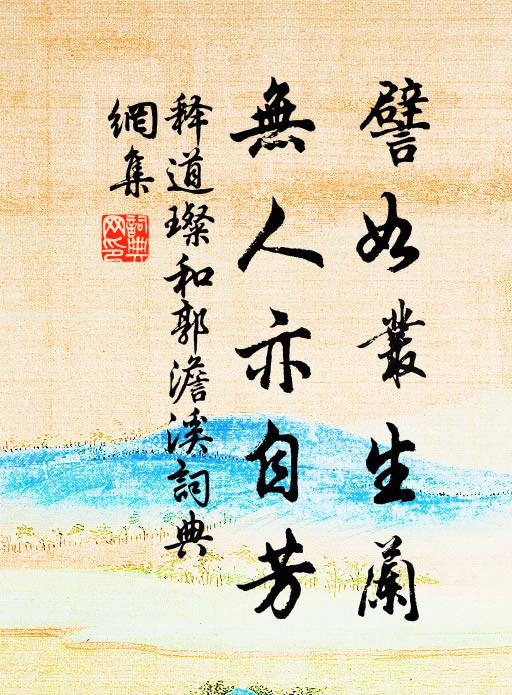 譬如叢生蘭
無人亦自芳
释道璨和郭澹溪詞典
網集
詞典
网印